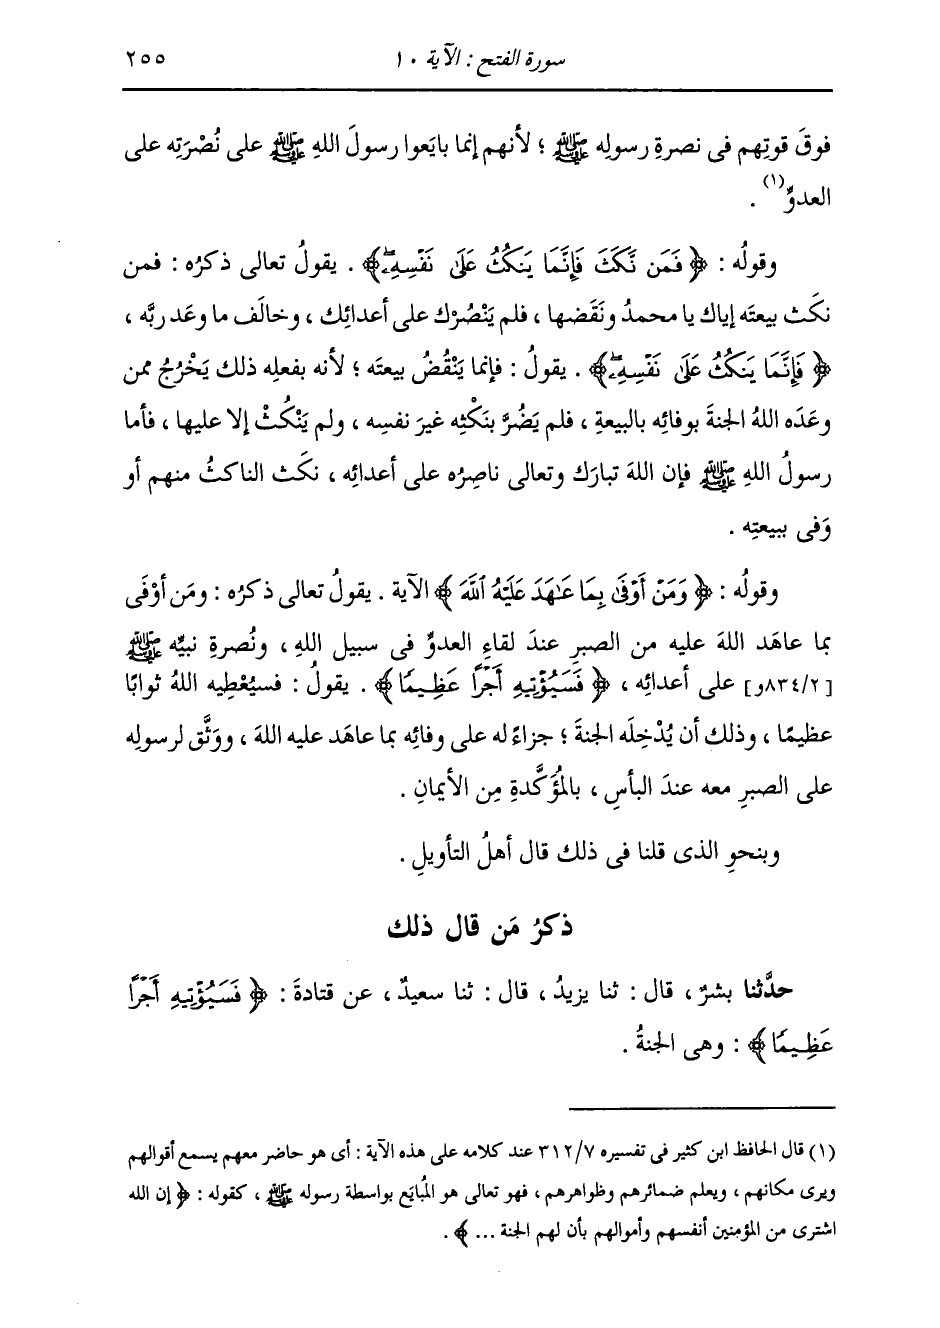 سورة الفتح : الآية ١٠ ٢٥٥
فوقَ قوتِهم فى نصرةِ رسولِه ﷺ ؛ لأنهم إنما بايَعوا رسولَ اللهِ ﷺ على نُصْرَتِه على
العدوِّ(١) .
وقولُه : ﴿ فَمَن نَّكَثَ فَإِنَّمَا يَنكُثُ عَلَىٰ نَفْسِهِۦۖ ﴾ . يقولُ تعالى ذكرُه : فمن
نكَث بيعتَه إياك يا محمدُ ونَقَضها ، فلم يَنْصُرْك على أعدائِك ، وخالَف ما وعَد ربَّه ،
﴿ فَإِنَّمَا يَنكُثُ عَلَىٰ نَفْسِهِۦۖ ﴾ . يقولُ : فإنما يَنْقُضُ بيعتَه ؛ لأنه بفعلِه ذلك يَخْرُجُ ممن
وعَدَه اللهُ الجنةَ بوفائِه بالبيعةِ ، فلم يَضُرَّ بنَكْثِه غيرَ نفسِه ، ولم يَنْكُثْ إلا عليها ، فأما
رسولُ اللهِ ﷺ فإن اللهَ تبارَك وتعالى ناصِرُه على أعدائِه ، نكَث الناكثُ منهم أو
وَفى ببيعتِه .
وقولُه : ﴿ وَمَنْ أَوْفَىٰ بِمَا عَـٰهَدَ عَلَيْهُ ٱللَّهَ ﴾ الآية . يقولُ تعالى ذكرُه : ومَن أوْفَى
بما عاهَد اللهَ عليه من الصبرِ عندَ لقاءِ العدوِّ فى سبيلِ اللهِ ، ونُصرةِ نبيِّه ﷺ
[٨٣٤/٢و] على أعدائِه ، ﴿ فَسَيُؤْتِيهِ أَجْرًا عَظِيمًا ﴾ . يقولُ : فسيُعْطِيه اللهُ ثوابًا
عظيمًا ، وذلك أن يُدْخِلَه الجنةَ ؛ جزاءً له على وفائِه بما عاهَد عليه اللهَ ، ووَثَّق لرسولِه
على الصبرِ معه عندَ البأسِ ، بالمُؤَكَّدةِ مِن الأيمانِ .
وبنحوِ الذى قلنا فى ذلك قال أهلُ التأويلِ .
ذكرُ مَن قال ذلك
حدَّثنا بشرٌ ، قال : ثنا يزيدُ ، قال : ثنا سعيدٌ ، عن قتادةَ : ﴿ فَسَيُؤْتِيهِ أَجْرًا
عَظِيمًا ﴾ : وهى الجنةُ .
(١) قال الحافظ ابن كثير فى تفسيره ٣١٢/٧ عند كلامه على هذه الآية : أى هو حاضر معهم يسمع أقوالهم
ويرى مكانهم ، ويعلم ضمائرهم وظواهرهم ، فهو تعالى هو المُبايَع بواسطة رسوله ﷺ ، كقوله : ﴿ إن الله
اشترى من المؤمنين أنفسهم وأموالهم بأن لهم الجنة ... ﴾ .